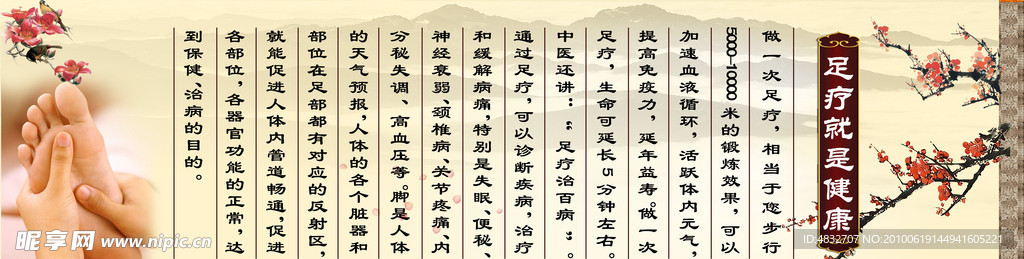 足疗就是健康
做一次足疗，相当于您步行
5000-10000 米的锻炼效果，可以
加速血液循环，活跃体内元气，
提高免疫力，延年益寿。做一次
足疗，生命可延长5分钟左右。
中医还讲：“足疗治百病”。
通过足疗，可以诊断疾病，治疗
和缓解病痛，特别是失眠、便秘、
神经衰弱、颈椎病、关节疼痛、内
分秘失调、高血压等。脚是人体
的天气预报，人体的各个脏器和
部位在足部都有对应的反射区，
就能促进人体内管道畅通，促进
各部位，各器官功能的正常，达
到保健、治病的目的。
昵享网 www.nipic.cn
ID:4832707 NO:20100619144941605221